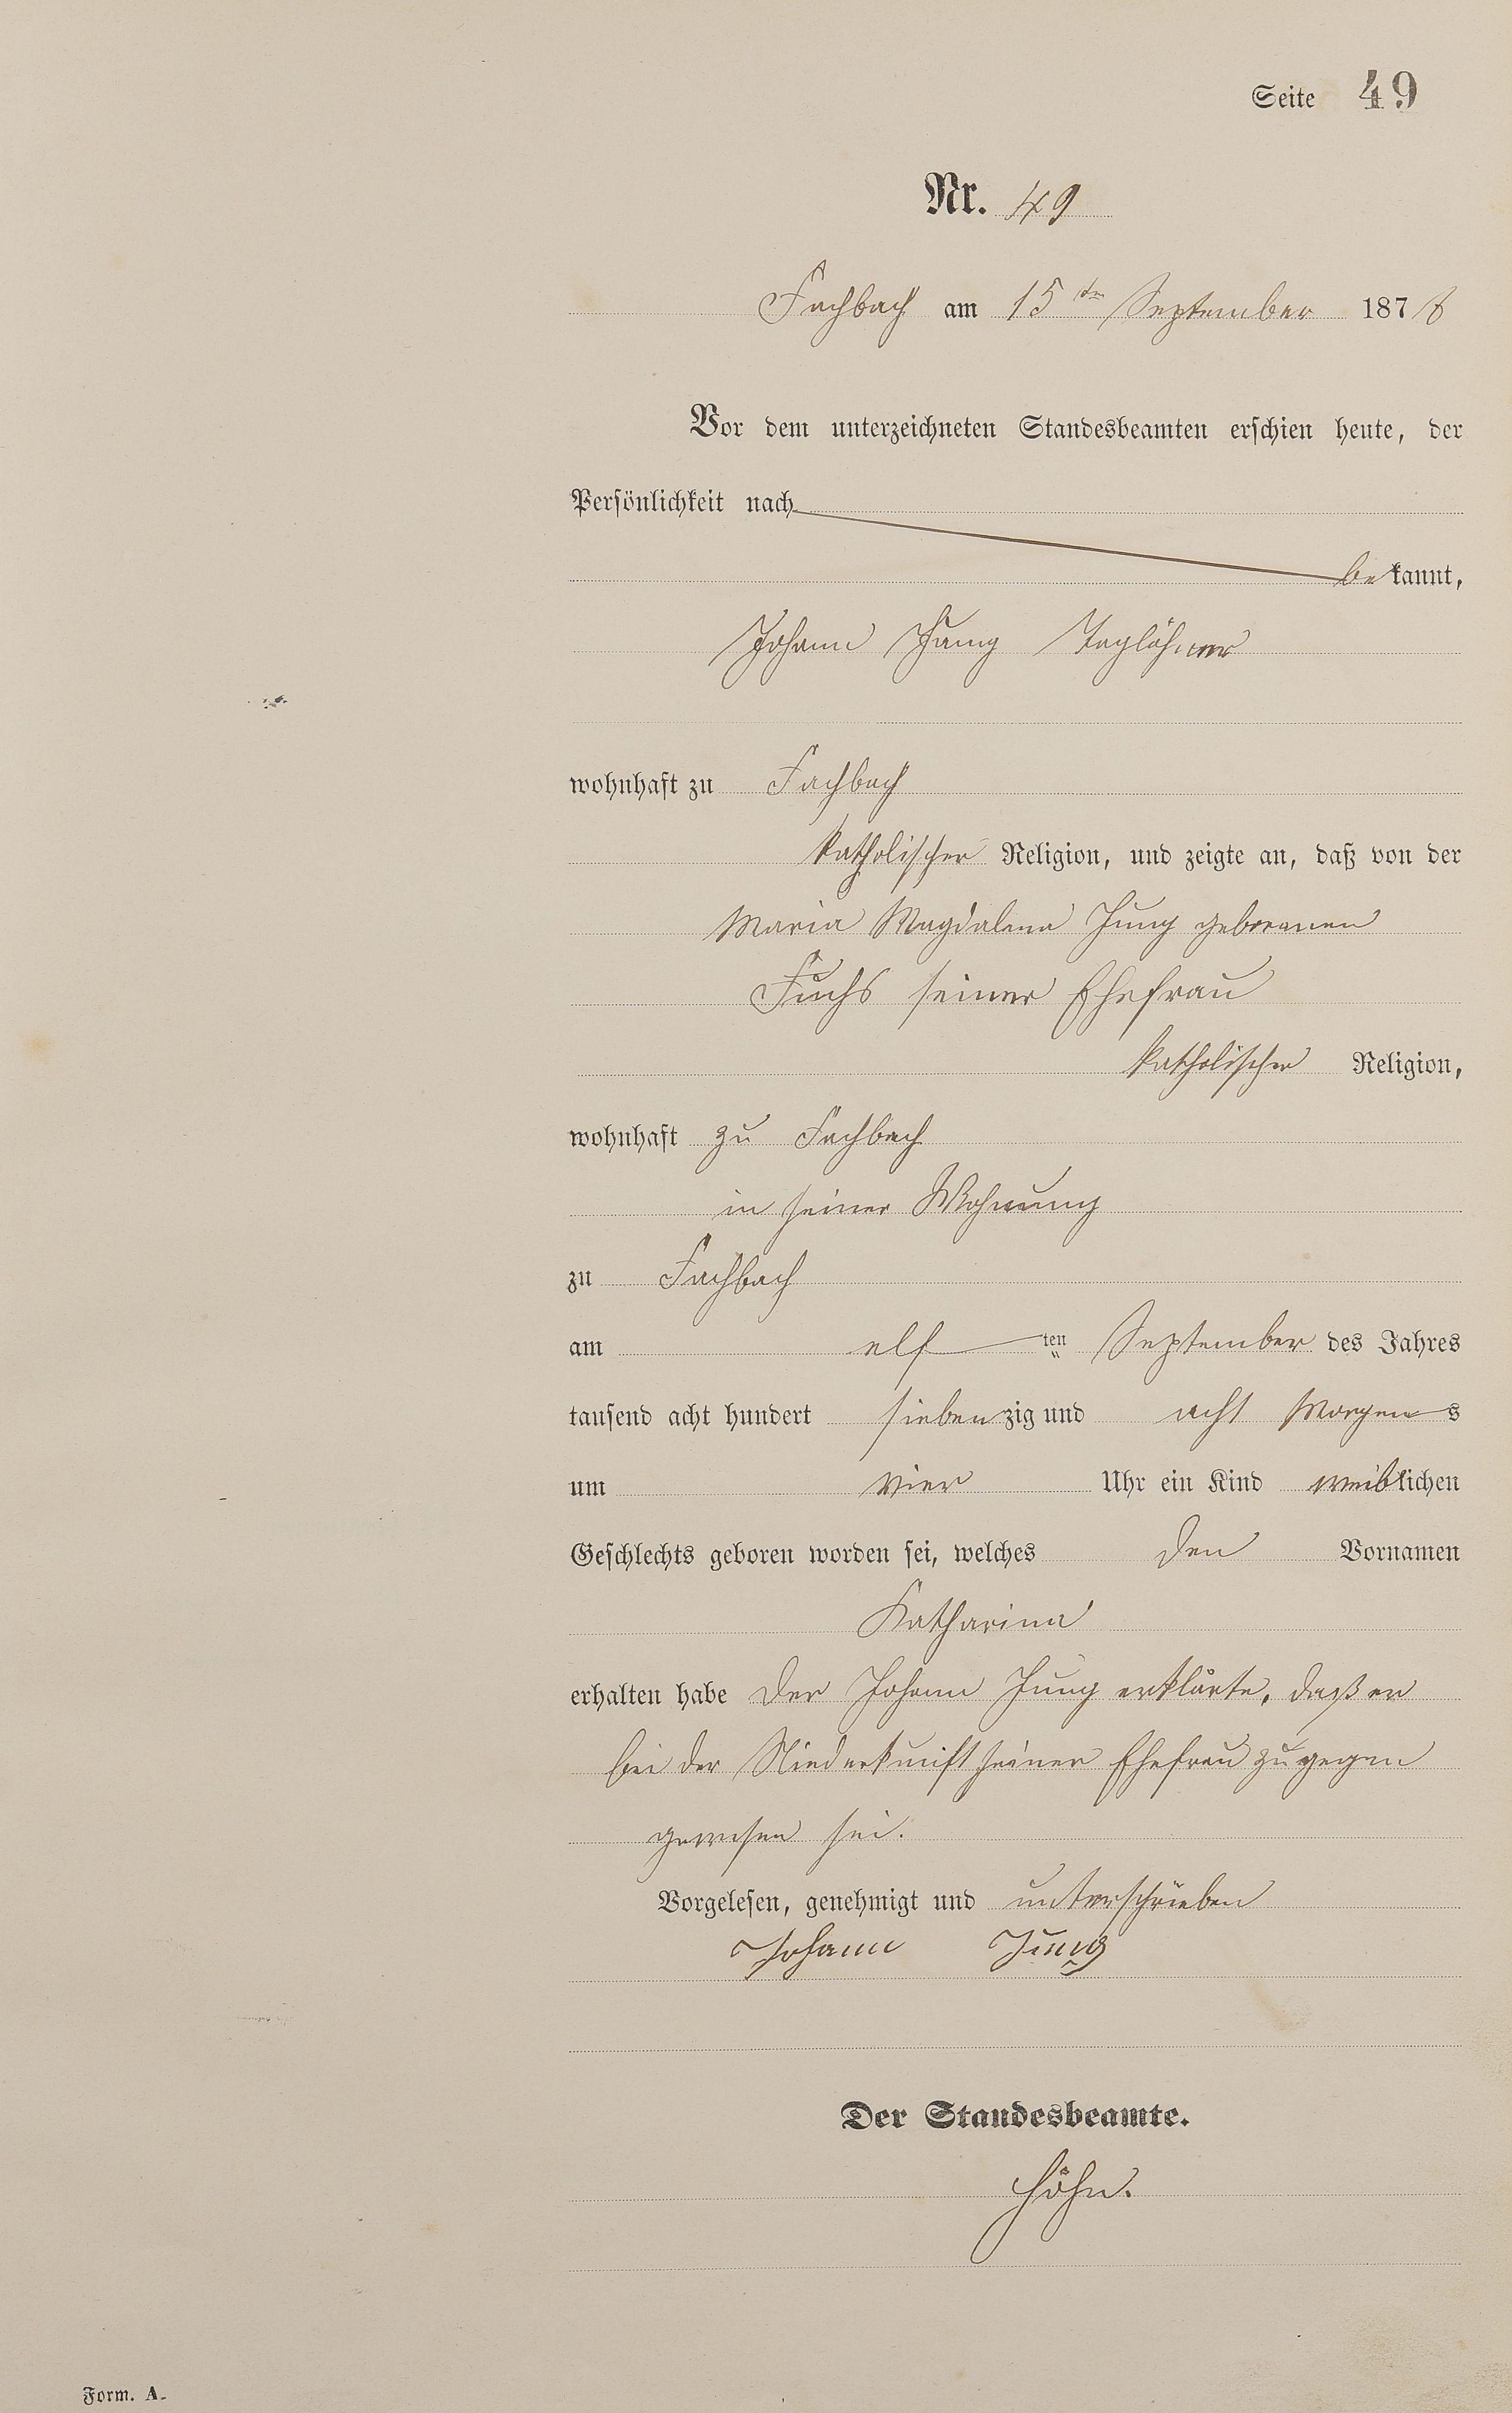 Seite 49
Nr. 49
Fachbach am 15ten September 1878
Vor dem unterzeichneten Standesbeamten erschien heute, der
Persönlichkeit nach
bekannt,
Johann Jung Taglöhner
wohnhaft zu Fachbach
katholischer Religion, und zeigte an, daß von der
Maria Magdalena Jung geborenen
Fuchs seiner Ehefrau
katholischer Religion,
wohnhaft zu Fachbach
in seiner Wohnung
zu Fachbach
am elf ten September des Jahres
tausend acht hundert siebenzig und acht Morgens
um vier Uhr ein Kind weiblichen
Geschlechts geboren worden sei, welches den Vornamen
Katharina
erhalten habe Der Johann Jung erklärte, daß er
bei der Niederkunft seiner Ehefrau zugegen
gewesen sei.
Vorgelesen, genehmigt und unterschrieben
Johann Jung
Der Standesbeamte.
Höhn.
Form. A.